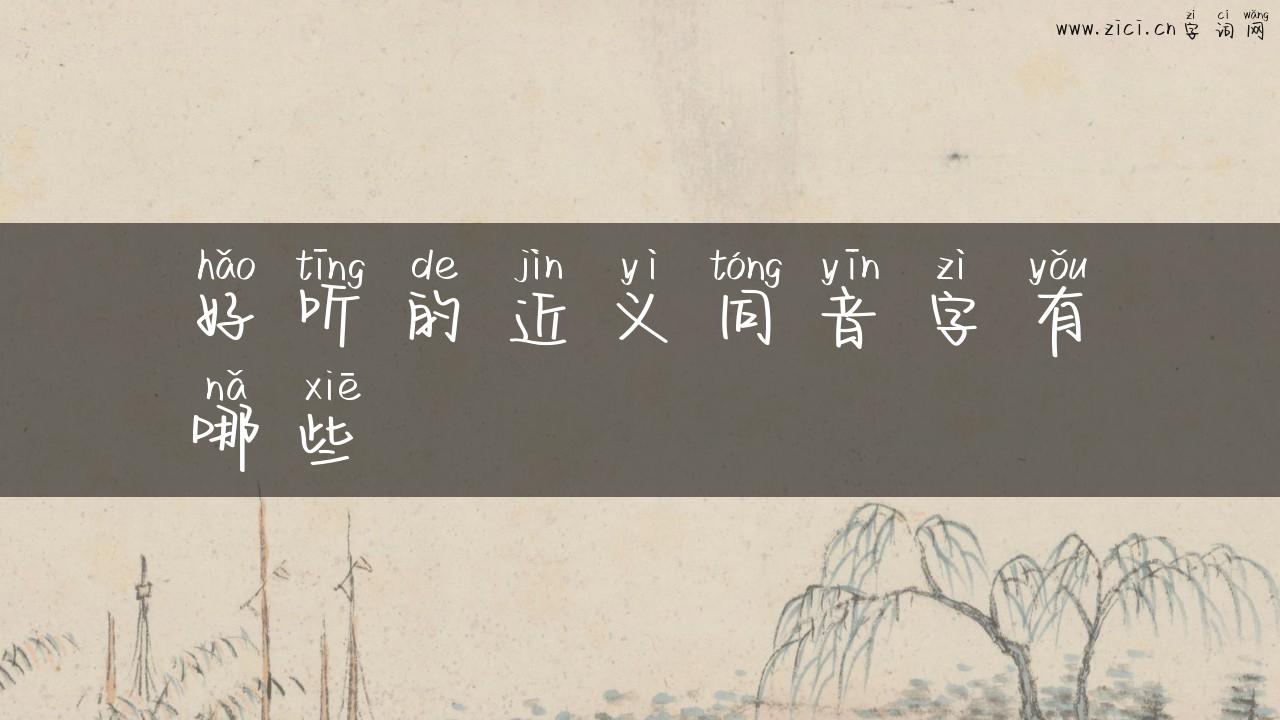 zì cí wǎng
www.zici.cn 字 词 网
hǎo tīng de jìn yì tóng yīn zì yǒu
好 听 的 近 义 同 音 字 有
nǎ xiē
哪 些